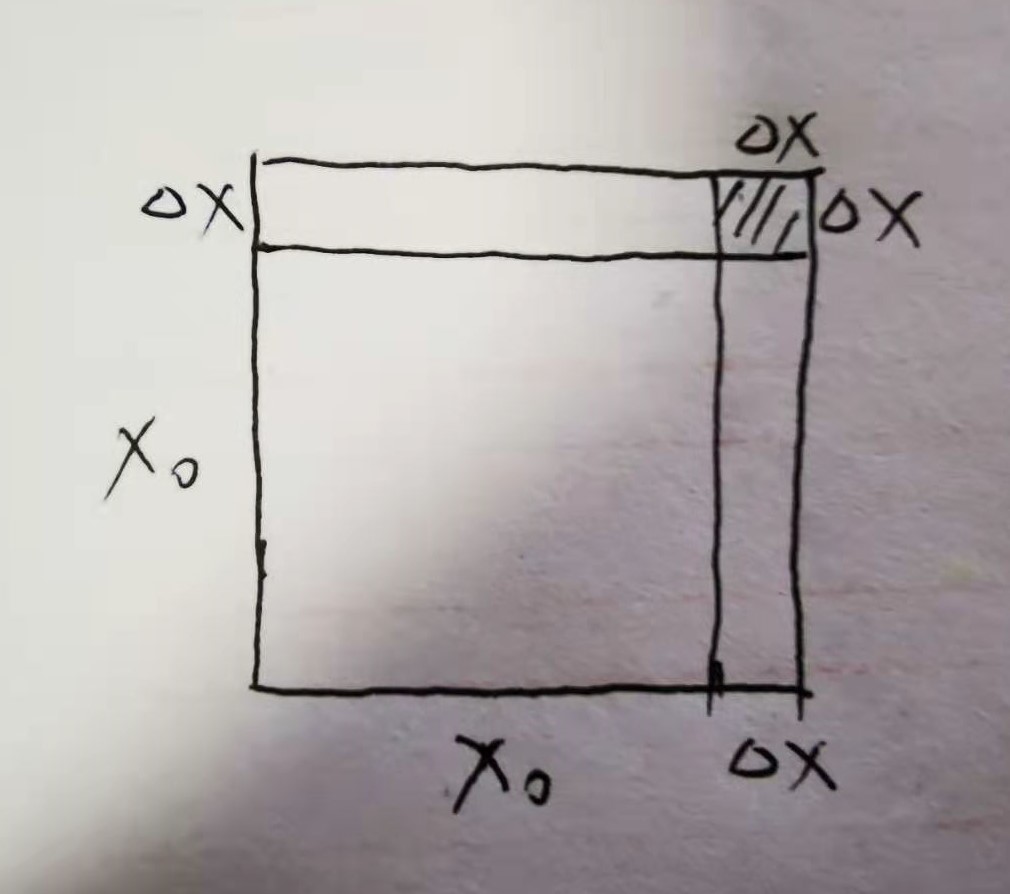 ΔX
ΔX
ΔX
X₀
X₀
ΔX